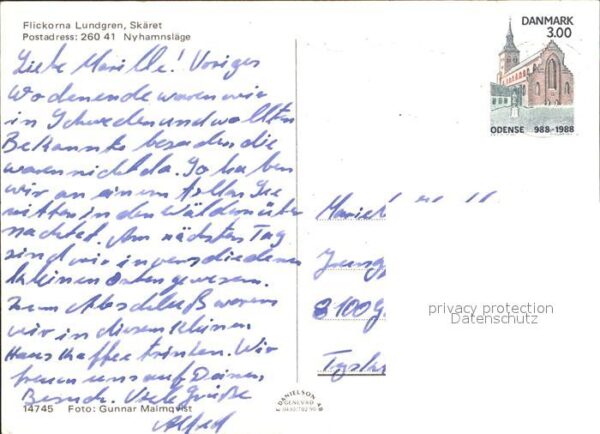 Flickorna Lundgren, Skäret
Postadress: 260 41 Nyhamnsläge
Liebe Marielle! Voriges
Wochenende waren wir
in Schweden und wollten
Bekannte besuchen die
waren nicht da. So haben
wir an einem tollen See
mitten in den Wäldern über
nachtet. Am nächsten Tag
sind wir in verschiedenen
kleinen Orten gewesen.
Zum Abschluß waren
wir in diesem kleinen
Haus Kaffee trinken. Wir
freuen uns auf Deinen
Besuch. Viele Grüße
Alfred
14745 Foto: Gunnar Malmqvist
DANIELSON
GENEVAD
DANMARK
3.00
ODENSE 988-1988
8100 G
privacy protection
Datenschutz